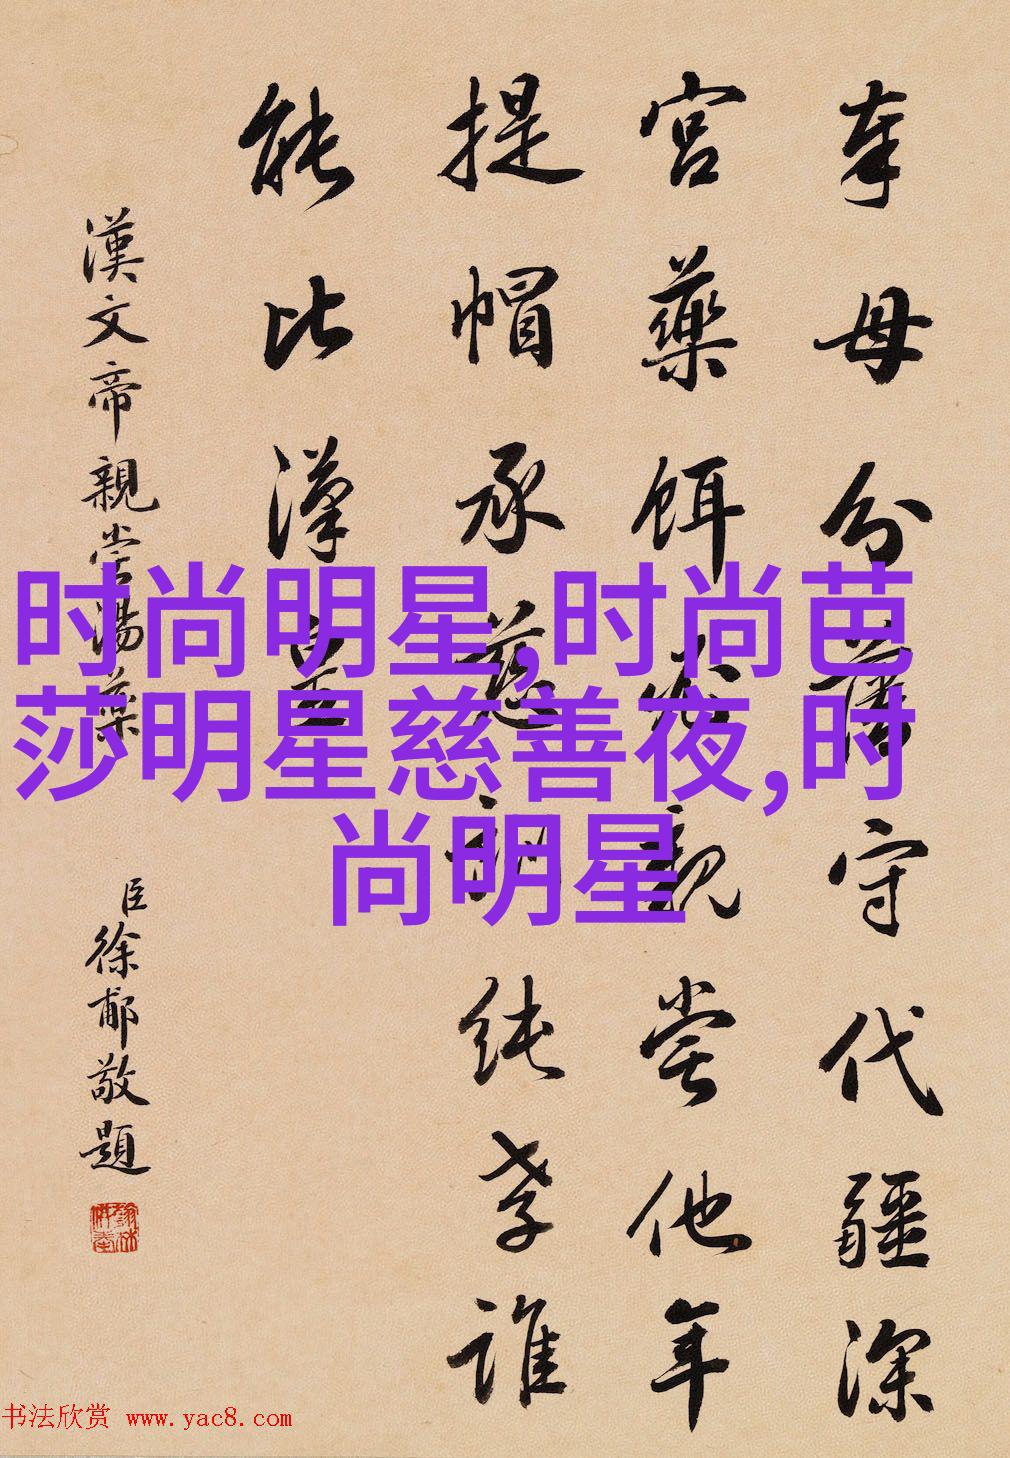 奉母分藩守代疆深
宮藥餌必親嘗他年
提帽承慈訓純孝誰
能比漢皇
漢文帝親嘗湯藥
臣徐郙敬題
时尚明星,时尚芭
莎明星慈善夜,时
尚明星
书法欣赏 www.yac8.com